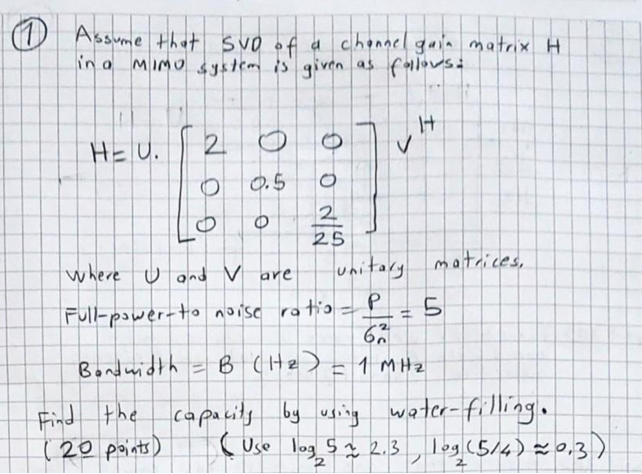 ① Assume that SVD of a channel gain matrix H
in a MIMO system is given as follows:
H = U. [ 2 0 0
0 0.5 0
0 0 2/25 ] V^H
where U and V are unitary matrices.
Full-power-to noise ratio = P/σn² = 5
Bandwidth = B (Hz) = 1 MHz
Find the capacity by using water-filling.
(20 points) (Use log₂5 ≈ 2.3, log₂(5/4) ≈ 0.3)